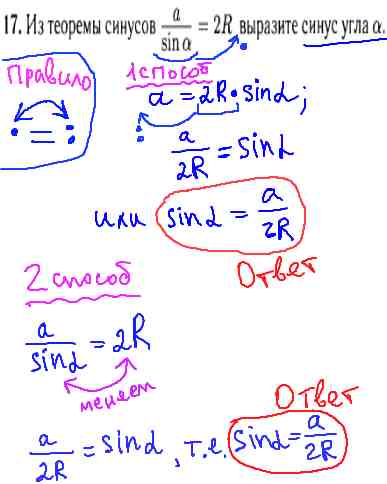 17. Из теоремы синусов a/sin α = 2R выразите синус угла α.
Правило
• = :
1 способ
a = 2R • sinα;
:
a/2R = sinα
или sinα = a/2R
Ответ
2 способ
a/sinα = 2R
меняем
Ответ
a/2R = sinα, т.е. sinα = a/2R